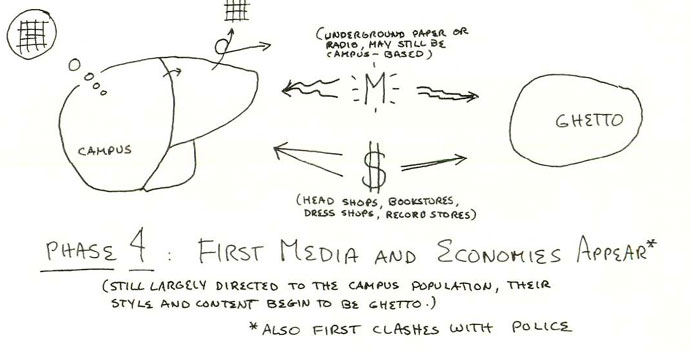 (UNDERGROUND PAPER OR
RADIO, MAY STILL BE
CAMPUS-BASED)
M
CAMPUS
GHETTO
$
(HEAD SHOPS, BOOKSTORES,
DRESS SHOPS, RECORD STORES)
PHASE 4: FIRST MEDIA AND ECONOMIES APPEAR*
(STILL LARGELY DIRECTED TO THE CAMPUS POPULATION, THEIR
STYLE AND CONTENT BEGIN TO BE GHETTO.)
*ALSO FIRST CLASHES WITH POLICE